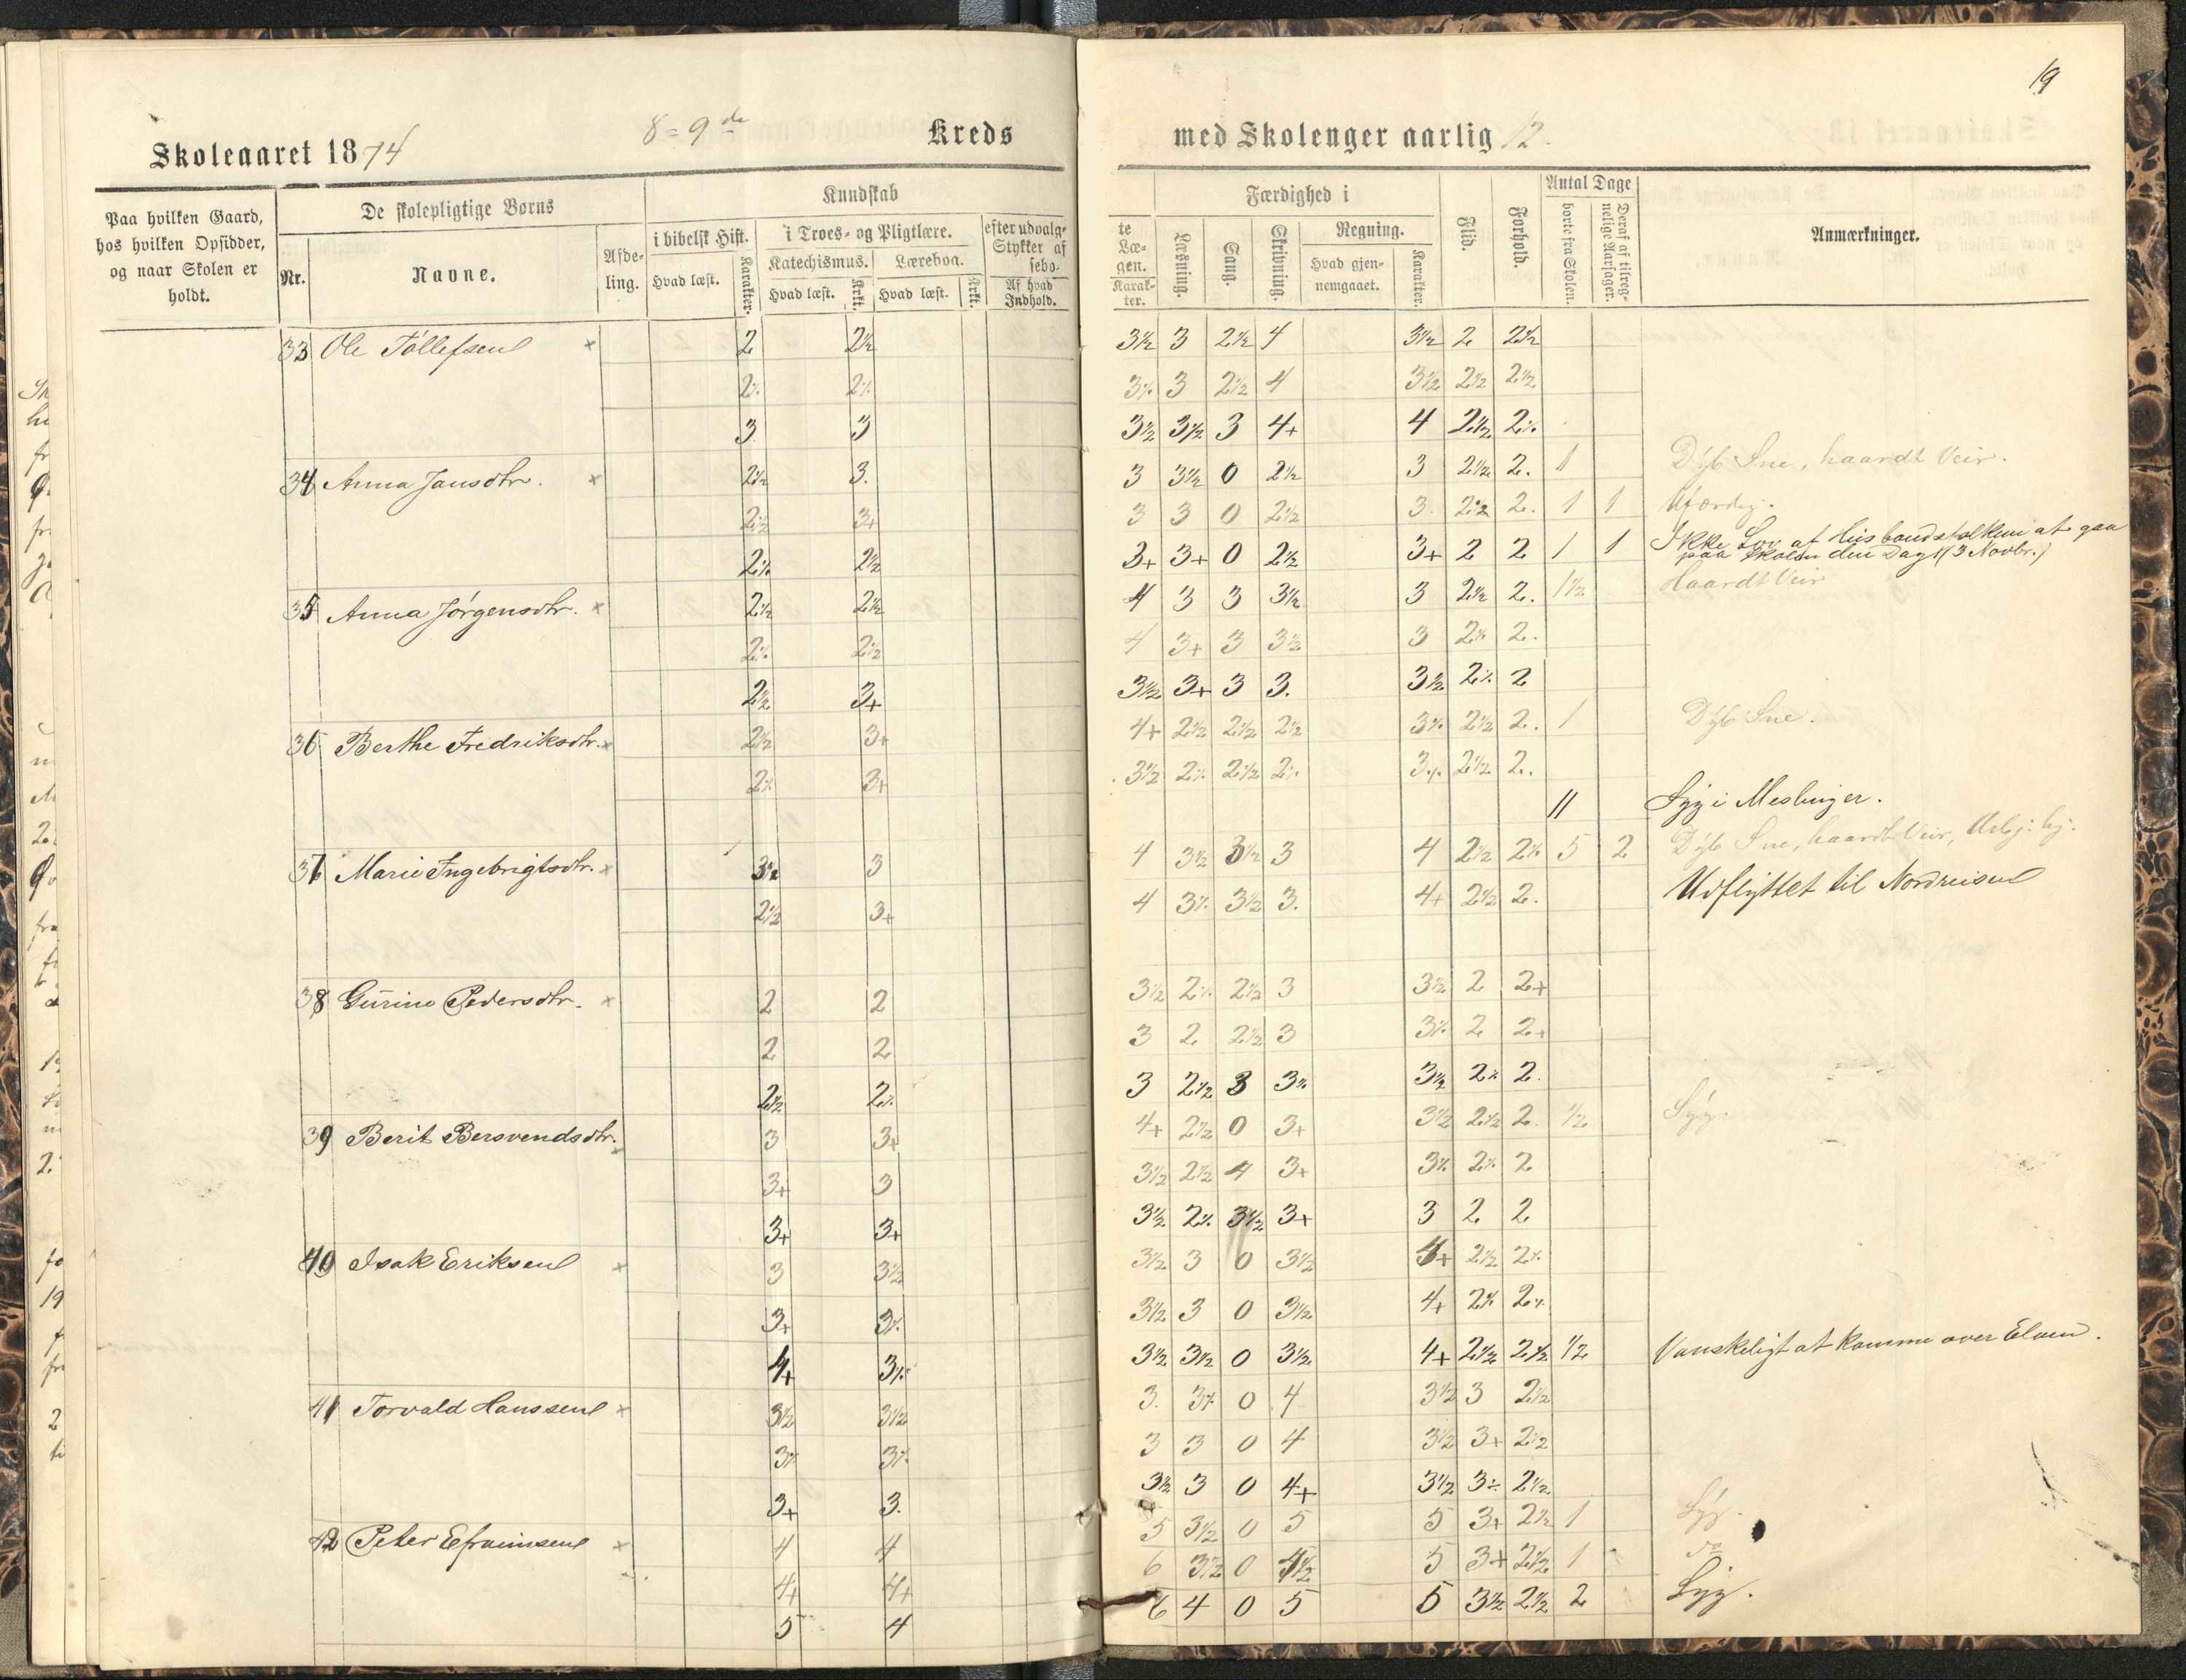 19
Skoleaaret 1874 8=9de Kreds med Skolenger aarlig 12.
Paa hvilken Gaard, hos hvilken Opsidder, og naar Skolen er holdt.
De skolepligtige Børns
Nr. Navne. Afdeling.
Kundskab
i bibelsk Hist. i Troes- og Pligtlære. efter udvalgte Stykker af Læsebogen.
Katechismus. Lærebog.
Hvad læst. Karakter. Hvad læst. Krkt. Hvad læst. Krkt. Af hvad Indhold. Karakter.
Færdighed i
Læsning. Sang. Skrivning. Regning.
Hvad gjennemgaaet. Karakter.
Flid. Forhold.
Antal Dage
borte fra Skolen. Deraf af tilregnelige Aarsager.
Anmærkninger.
33 Ole Tollefsen x 2 2½ 3½ 3 2½ 4 3½ 2 2½
2⁒ 2⁒ 3⁒ 3 2½ 4 3½ 2½ 2½
3 3 3½ 3½ 3 4+ 4 2½ 2⁒
34 Anna Jansdtr. x 2½ 3. 3 3½ 0 2½ 3 2½ 2. 1 Dyb Sne, haardt Veir.
2½ 3+ 3 3 0 2½ 3. 2½ 2. 1 1 Ufærdig.
2⁒ 2½ 3+ 3+ 0 2½ 3+ 2 2 1 1 Ikke Lov af Husbondsfolkene at gaa
paa Skolen den Dag (3 Novbr.)
35 Anna Jørgensdtr. x 2½ 2½ 4 3 3 3½ 3 2½ 2. 1½ Haardt Veir
2⁒ 2½ 4 3+ 3 3½ 3 2⁒ 2.
2½ 3+ 3½ 3+ 3 3. 3½ 2⁒ 2
36 Berthe Fredriksdtr. x 2½ 3+ 4+ 2½ 2½ 2½ 3⁒ 2½ 2. 1 Dyb Sne.
2⁒ 3+ 3½ 2⁒ 2½ 2⁒ 3⁒ 2½ 2.
11 Syg i Meslinger.
37 Marie Ingebrigtsdtr. x 3½ 3 4 3½ 3½ 3 4 2½ 2⁒ 5 2 Dyb Sne, haardt Veir,
2½ 3+ 4 3⁒ 3½ 3. 4+ 2½ 2. Udflyttet til Nordreisen
38 Gurine Pedersdtr. x 2 2 3½ 2⁒ 2½ 3 3½ 2 2+
2 2 3 2 2½ 3 3⁒ 2 2+
2½ 2⁒ 3 2½ 3 3⁒ 3½ 2⁒ 2.
39 Berit Bersvendsdtr. x 3 3+ 4+ 2½ 0 3+ 3½ 2½ 2. ½ Syg.
3+ 3 3½ 2½ 4 3+ 3⁒ 2⁒ 2
3+ 3+ 3½ 2⁒ 3½ 3+ 3 2 2
40 Isak Eriksen x 3 3½ 3½ 3 0 3½ 4+ 2½ 2⁒
3+ 3⁒ 3½ 3 0 3½ 4+ 2⁒ 2⁒
4+ 3⁒ 3½ 3½ 0 3½ 4+ 2½ 2½ ½ Vanskeligt at komme over Elven.
41 Torvald Hanssen x 3½ 3½ 3. 3⁒ 0 4 3½ 3 2½
3⁒ 3⁒ 3 3 0 4 3½ 3+ 2½
3+ 3. 3½ 3 0 4+ 3½ 3÷ 2½
42 Peter Efraimsen x 4 4 5 3½ 0 5 5 3+ 2½ 1 Syg.
4+ 4+ 6 3½ 0 4½ 5 3+ 2½ 1 do
5 4 6 4 0 5 5 3½ 2½ 2 Syg.